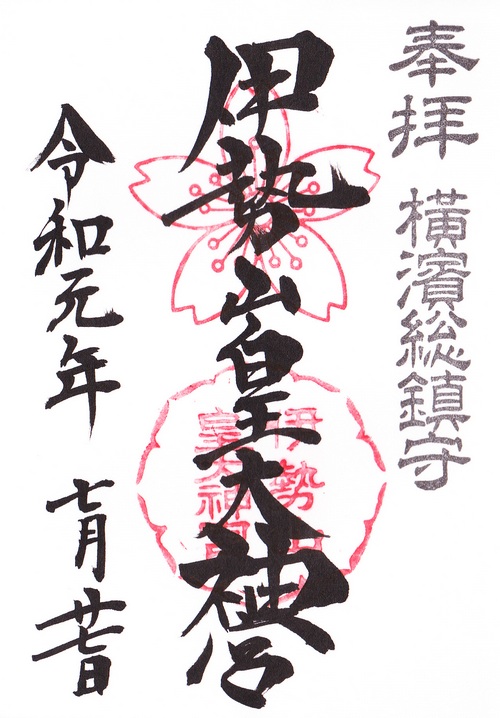 奉拝 横濱総鎮守
伊勢山皇大神宮
令和元年 七月廿七日
伊勢山
皇大神宮